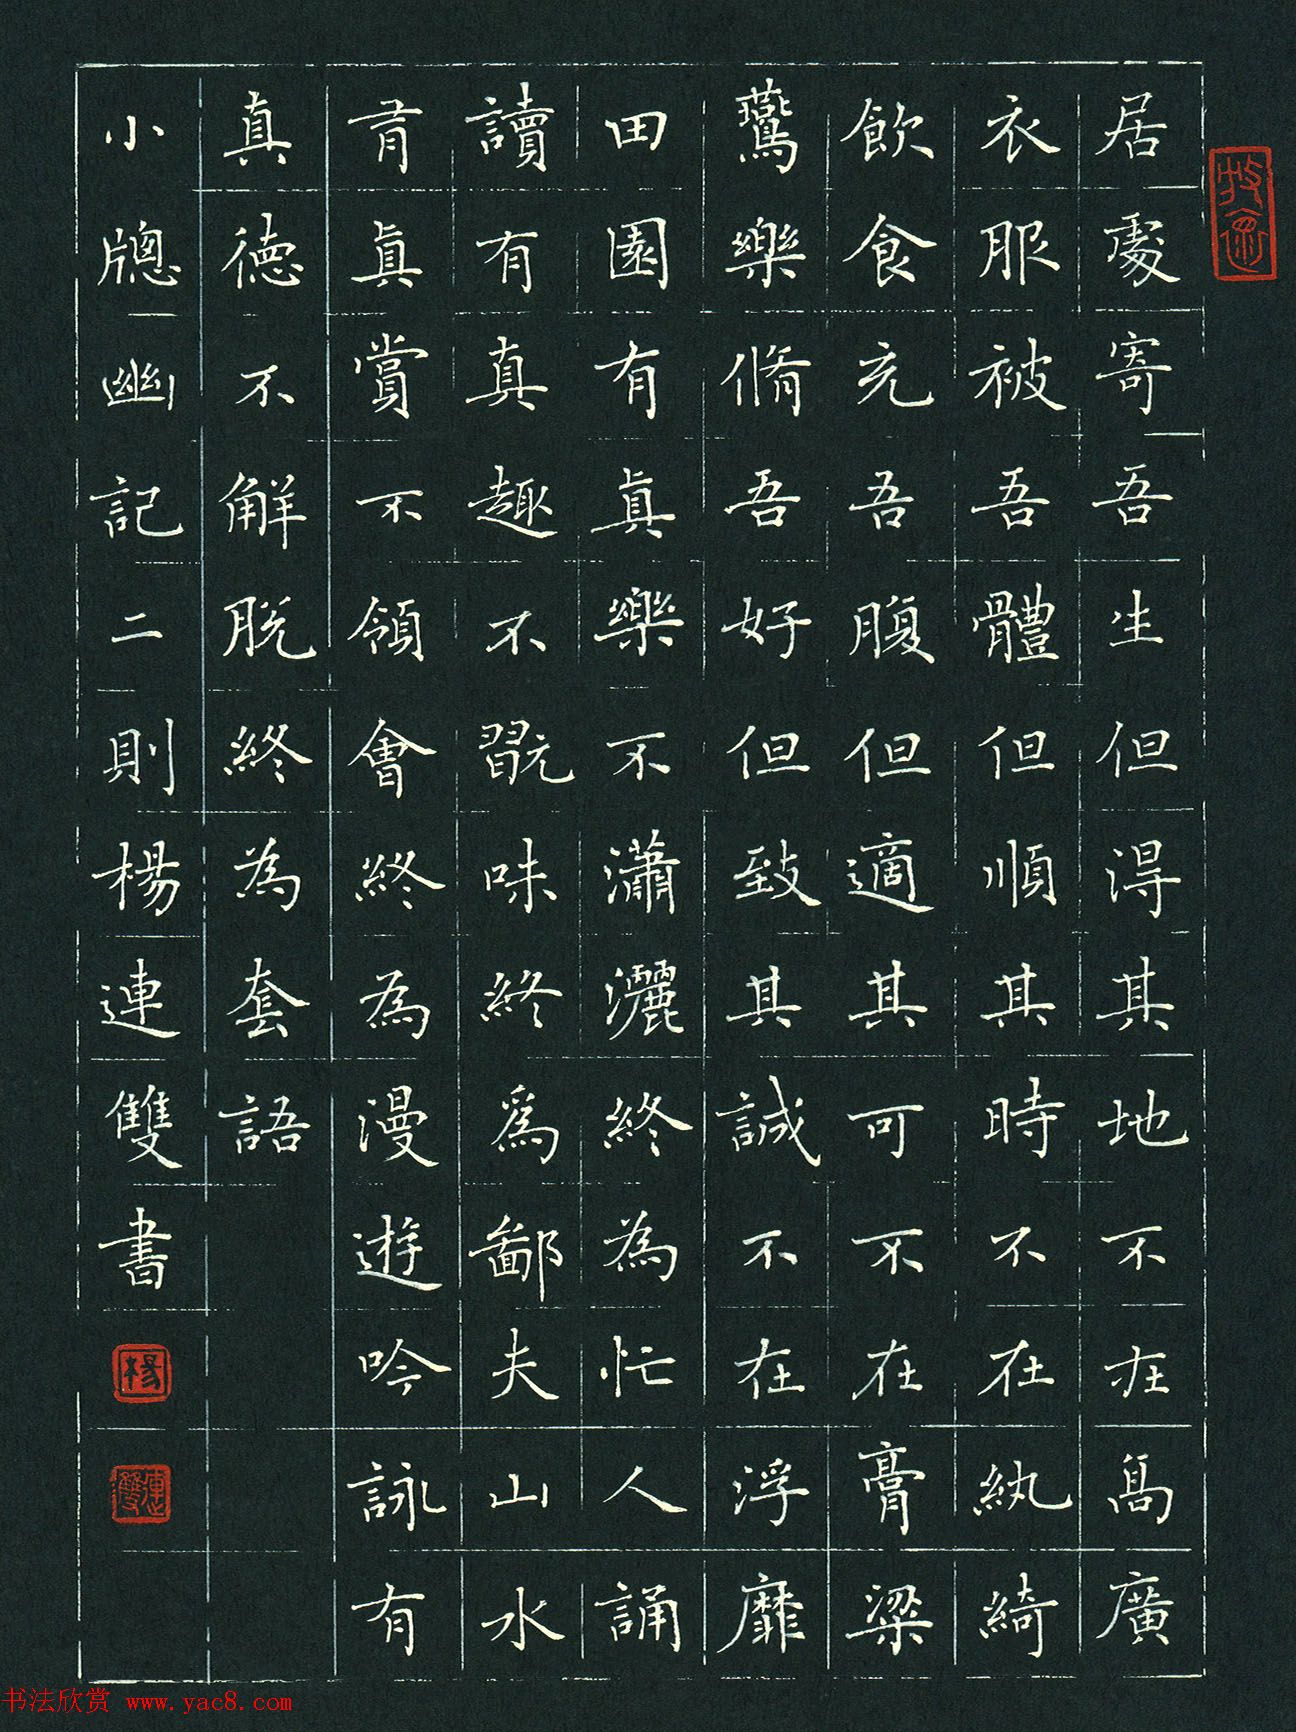 居處寄吾生但得其地不在高廣
衣服被吾體但順其時不在紈綺
飲食充吾腹但適其可不在膏粱
鷰樂脩吾好但致其誠不在浮靡
田園有真樂不瀟灑終為忙人誦
讀有真趣不翫味終為鄙夫山水
有真賞不領會終為漫遊吟詠有
真德不解脫終為套語
小牕幽記二則楊連雙書
楊
連雙
书法欣赏 www.yac8.com